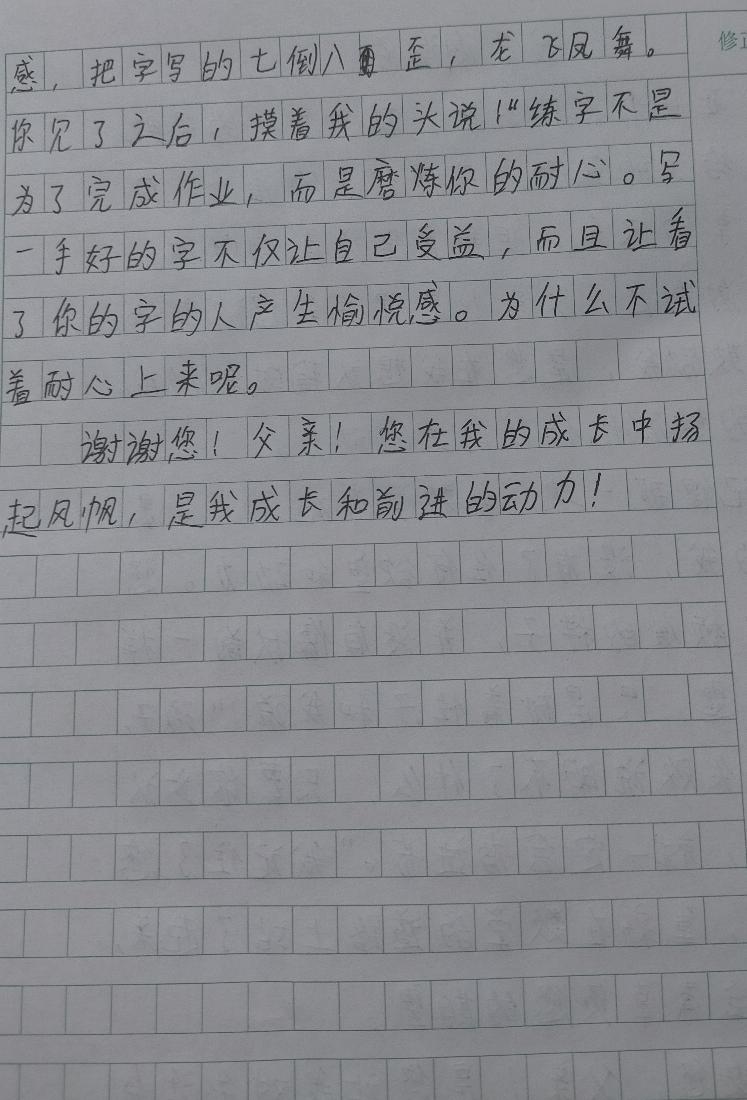 感，把字写的七倒八歪，龙飞凤舞。
你见了之后，摸着我的头说："练字不是
为了完成作业，而是磨炼你的耐心。写
一手好的字不仅让自己受益，而且让看
了你的字的人产生愉悦感。为什么不试
着耐心上来呢。
谢谢您！父亲！您在我的成长中扬
起风帆，是我成长和前进的动力！
修正